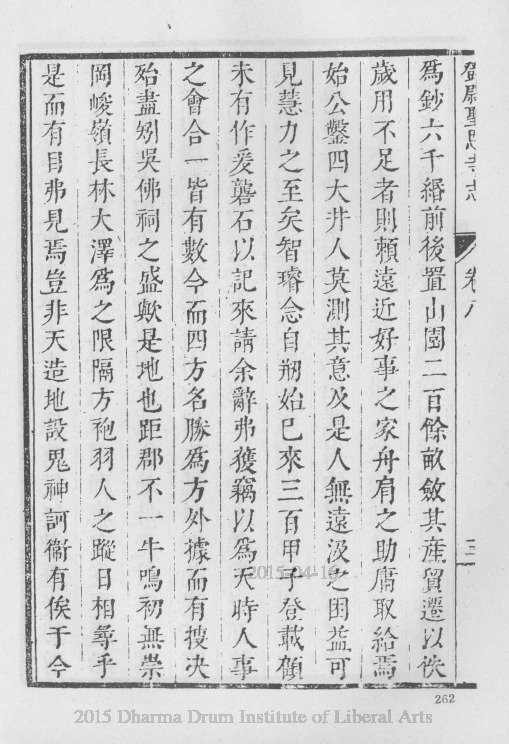 鄧尉聖恩寺志 卷八 三
爲鈔六千緡前後置山園二百餘畝斂其產貿遷以佚
歲用不足者則頼遠近好事之家舟肩之助庸取給焉
始公鑿四大井人莫測其意及是人無遠汲之困益可
見慧力之至矣智璿念自剏始已來三百甲子登載傾
未有作爰礱石以記來請余辭弗獲竊以爲天時人事
之會合一皆有數今而四方名勝爲方外據而有搜决
殆盡矧吳佛祠之盛歟是地也距郡不一牛鳴初無崇
岡峻嶺長林大澤爲之限隔方袍羽人之蹤日相尋乎
是而有目弗見焉豈非天造地設鬼神訶衞有俟于今
2015-04-16
262
2015 Dharma Drum Institute of Liberal Arts